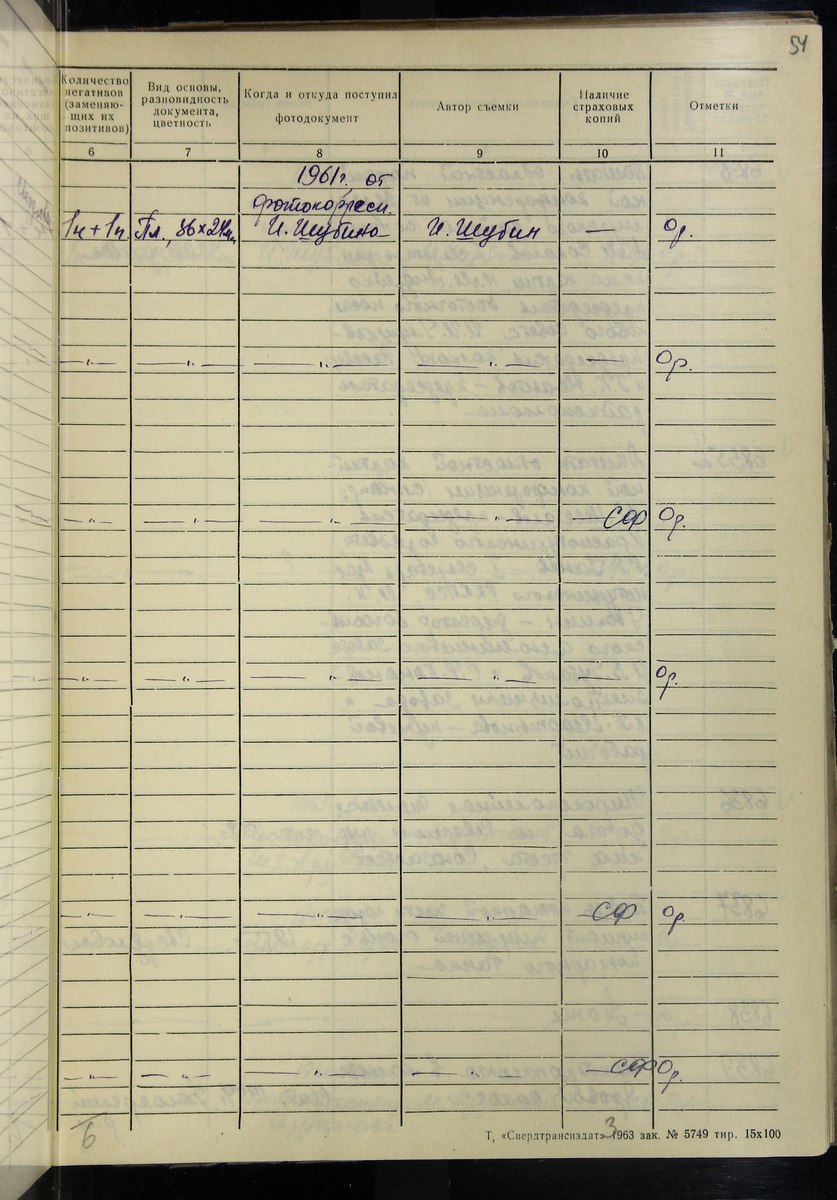 54
Количество негативов (заменяющих их позитивов)
Вид основы, разновидность документа, цветность
Когда и откуда поступил фотодокумент
Автор съемки
Наличие страховых копий
Отметки
6 7 8 9 10 11
1961г. от
фотокорресп.
1н+1п Пл., 36×24мм И. Шубина И. Шубин — Ор.
—"— —"— —"— —"— Ор.
—"— —"— —"— —"— СФ Ор.
—"— —"— —"— —"— Ор.
—"— —"— —"— —"— СФ Ор.
—"— —"— —"— —"— СФ Ор.
6 3
Т. «Свердтрансиздат» 1963 зак. № 5749 тир. 15х100